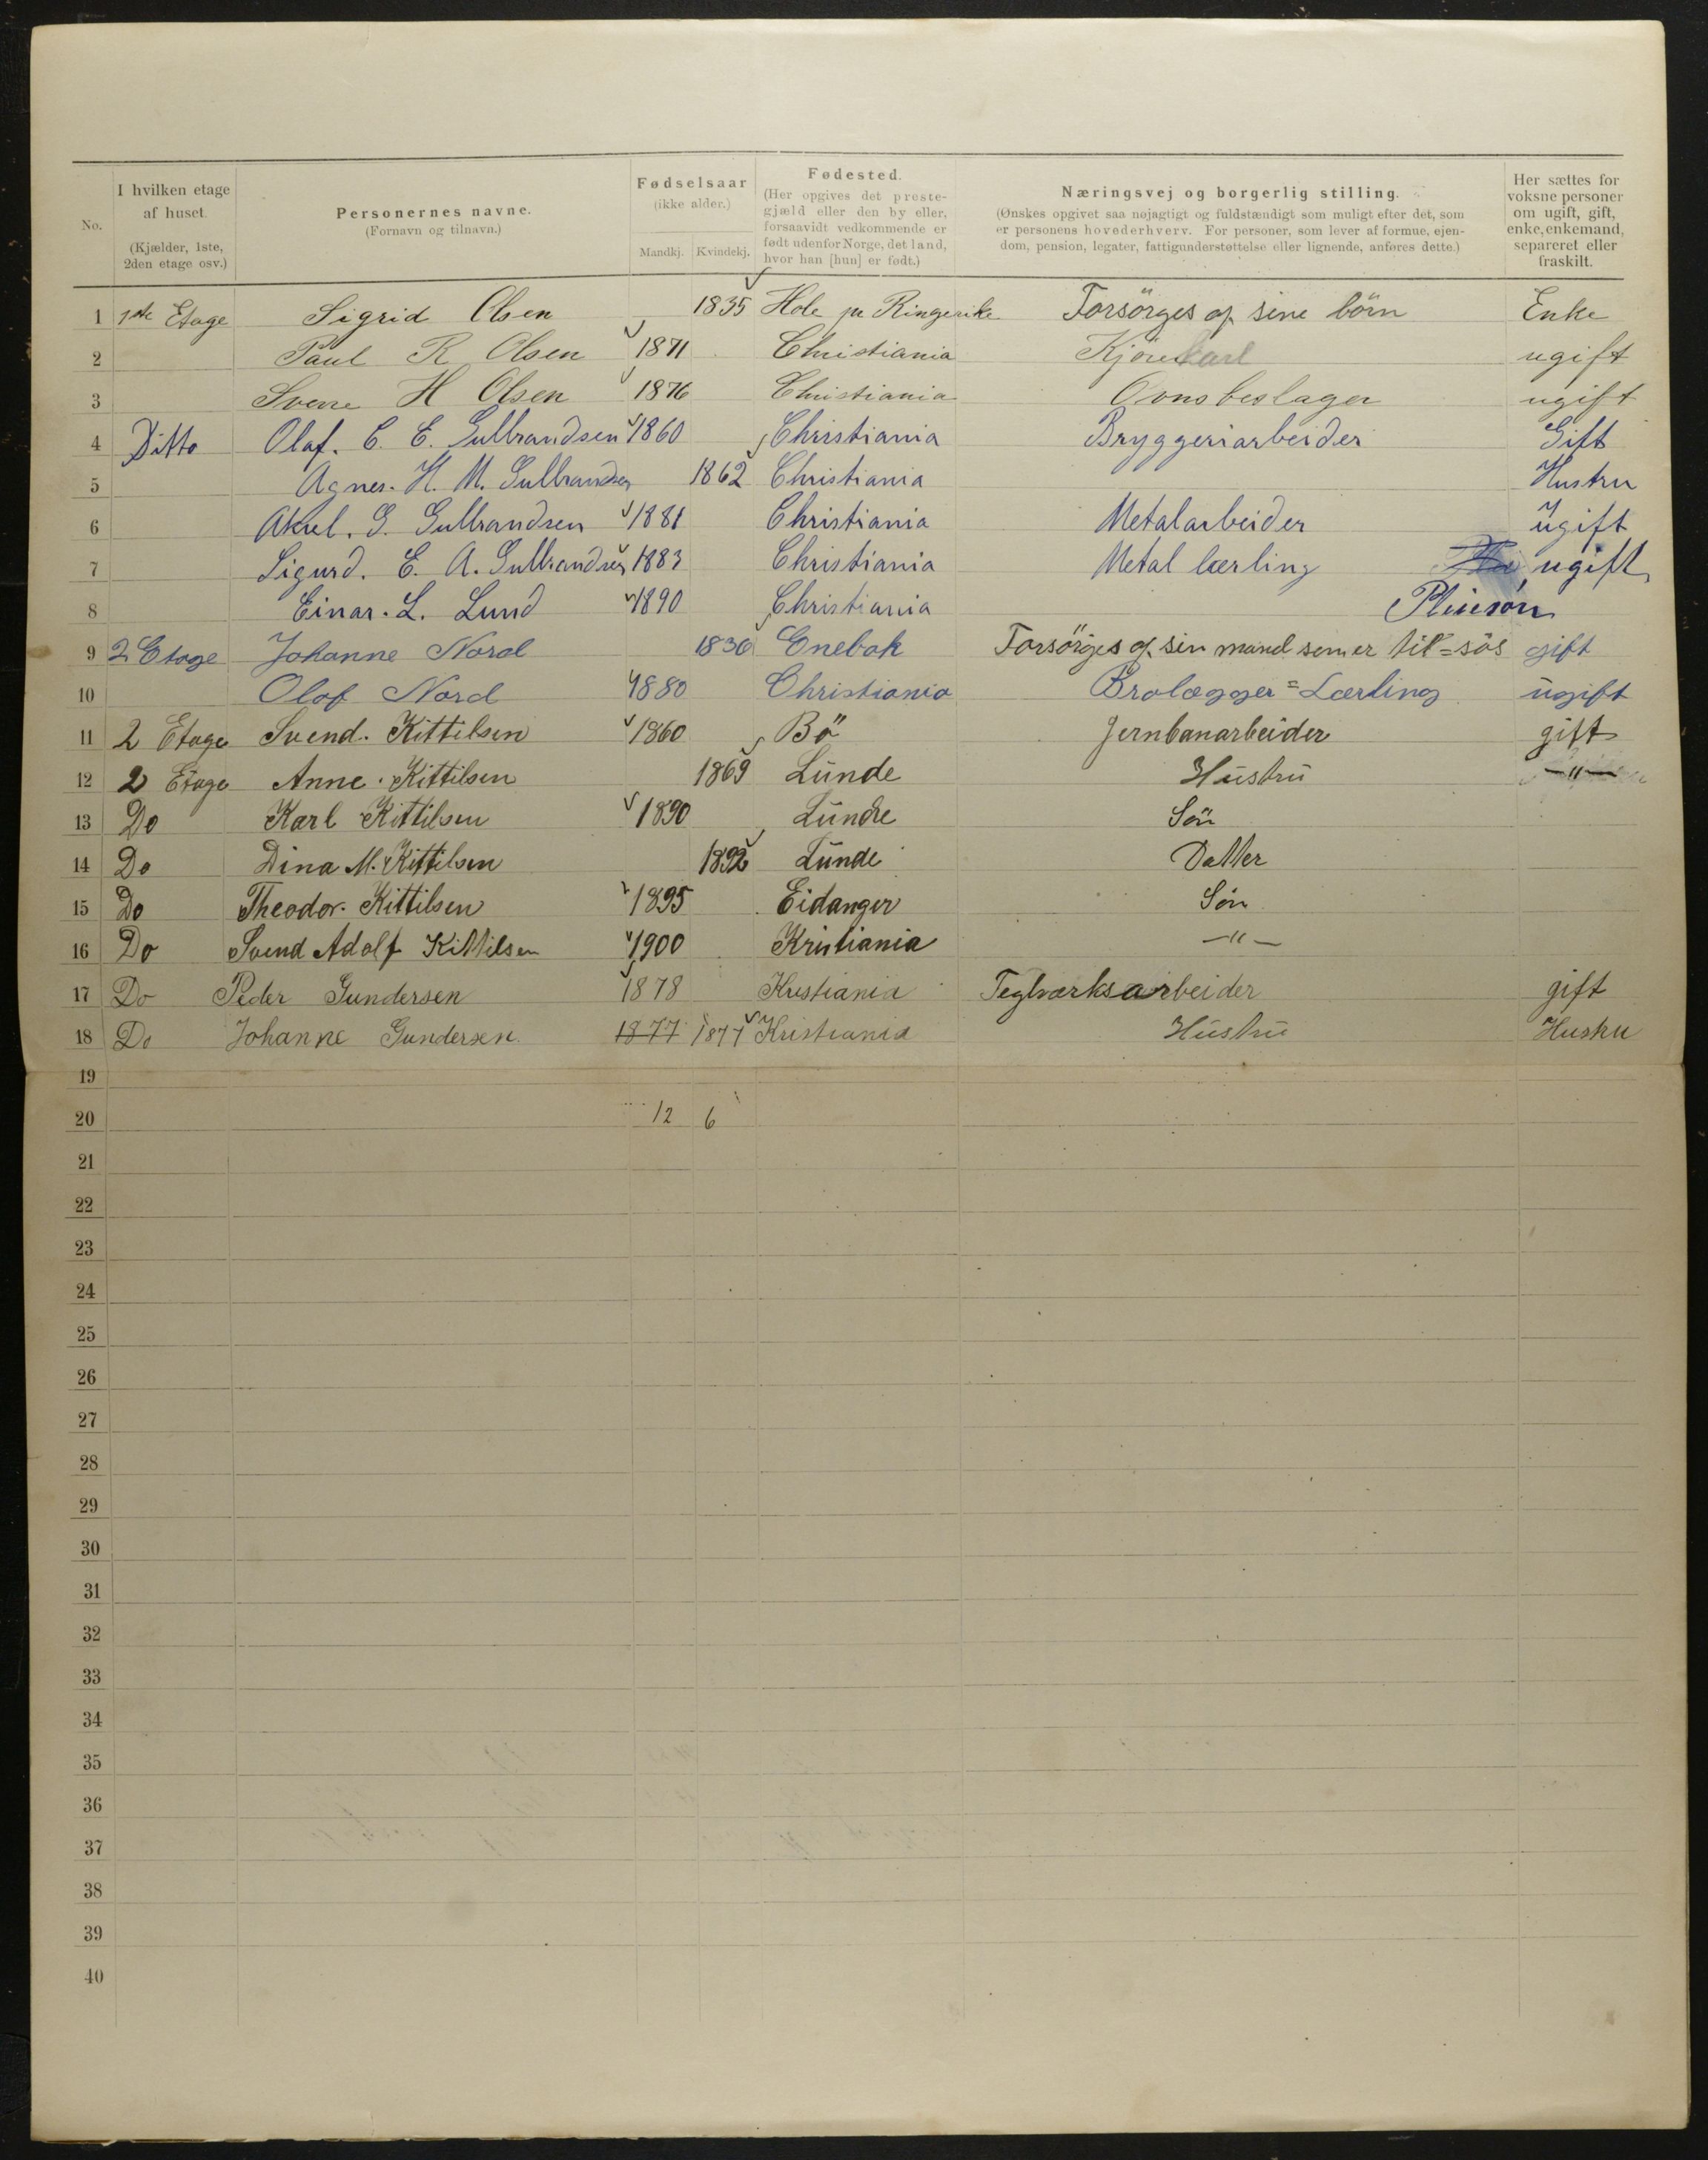 No.
I hvilken etage af huset. (Kjælder, 1ste, 2den etage osv.)
Personernes navne. (Fornavn og tilnavn.)
Fødselsaar (ikke alder.)
Mandkj. Kvindekj.
Fødested. (Her opgives det prestegjæld eller den by eller, forsaavidt vedkommende er født udenfor Norge, det land, hvor han [hun] er født.)
Næringsvej og borgerlig stilling. (Ønskes opgivet saa nøjagtigt og fuldstændigt som muligt efter det, som er personens hovederhverv. For personer, som lever af formue, ejendom, pension, legater, fattigunderstøttelse eller lignende, anføres dette.)
Her sættes for voksne personer om ugift, gift, enke, enkemand, separeret eller fraskilt.
1 1ste Etage Sigrid Olsen 1835 Hole pr Ringerike Forsörges af sine börn Enke
2 Paul R Olsen 1871 Christiania Kjörekarl ugift
3 Sverre H Olsen 1876 Christiania Ovnsbeslager ugift
4 Ditto Olaf. C. E. Gulbrandsen 1860 Christiania Bryggeriarbeider Gift
5 Agnes. H. M. Gulbrandsen 1862 Christiania Hustru
6 Aksel. G. Gulbrandsen 1881 Christiania Metalarbeider Ugift
7 Sigurd. E. A. Gulbrandsen 1883 Christiania Metal lærling ugift
8 Einar. L. Lund 1890 Christiania Pleiesøn
9 2 Etage Johanne Nord 1836 Enebak Forsörges af sin mand som er til=sös gift
10 Olaf Nord 1880 Christiania Brolægger=Lærling ugift
11 2 Etage Svend. Kittilsen 1860 Bö Jernbanarbeider gift
12 2 Etage Anne. Kittilsen 1869 Lunde Hustru —"—
13 Do Karl Kittilsen 1890 Lunde Sön
14 Do Dina M. Kittilsen 1892 Lunde Datter
15 Do Theodor. Kittilsen 1895 Eidanger Sön
16 Do Svend Adolf Kittilsen 1900 Kristiania —"—
17 Do Peder Gundersen 1878 Kristiania Teglværksarbeider gift
18 Do Johanne Gundersen 1877 1877 Kristiania Hustru Hustru
19
20 12 6
21
22
23
24
25
26
27
28
29
30
31
32
33
34
35
36
37
38
39
40